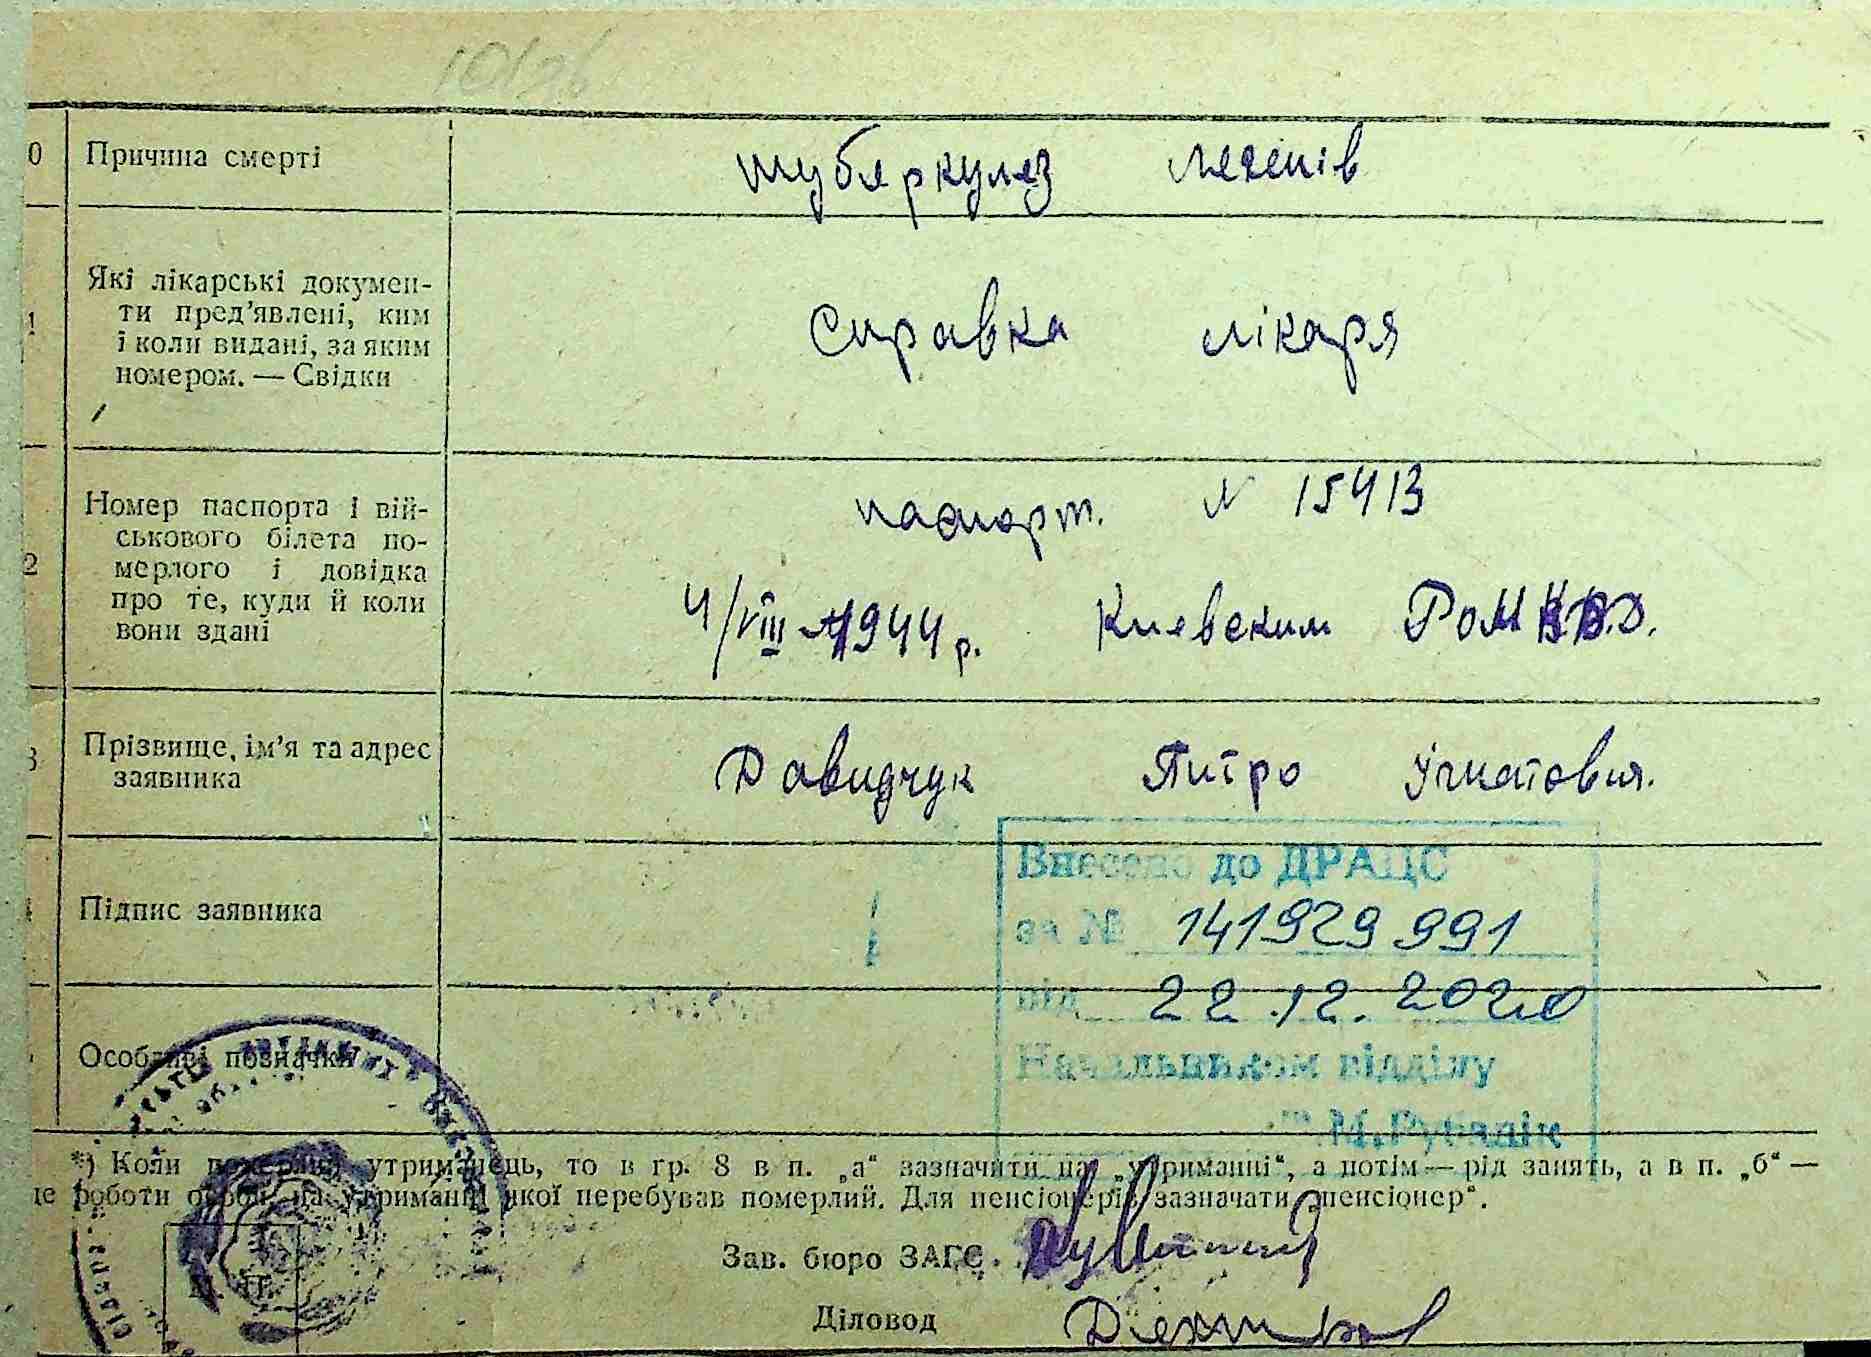 0 Причина смерті
тубяркулез легенів
1 Які лікарські докумен-
ти пред'явлені, ким
і коли видані, за яким
номером. — Свідки
Справка лікаря
2 Номер паспорта і вій-
ськового білета по-
мерлого і довідка
про те, куди й коли
вони здані
паспорт. № 15413
4/VIII-1944 р. Киевским РоМ
3 Прізвище, ім'я та адрес
заявника
Давидчук Питро Ігнатовия.
Підпис заявника
Внесено до ДРАЦС
за № 141929991
від 22.12.2020
Начальником відділу
Особливі позначки
*) Коли померлий утриманець, то в гр. 8 в п. „а“ зазначити на „утриманні“, а потім — рід занять, а в п. „б“ —
це роботи особи, на утриманні якої перебував померлий. Для пенсіонерів зазначати „пенсіонер“.
Зав. бюро ЗАГС
Діловод